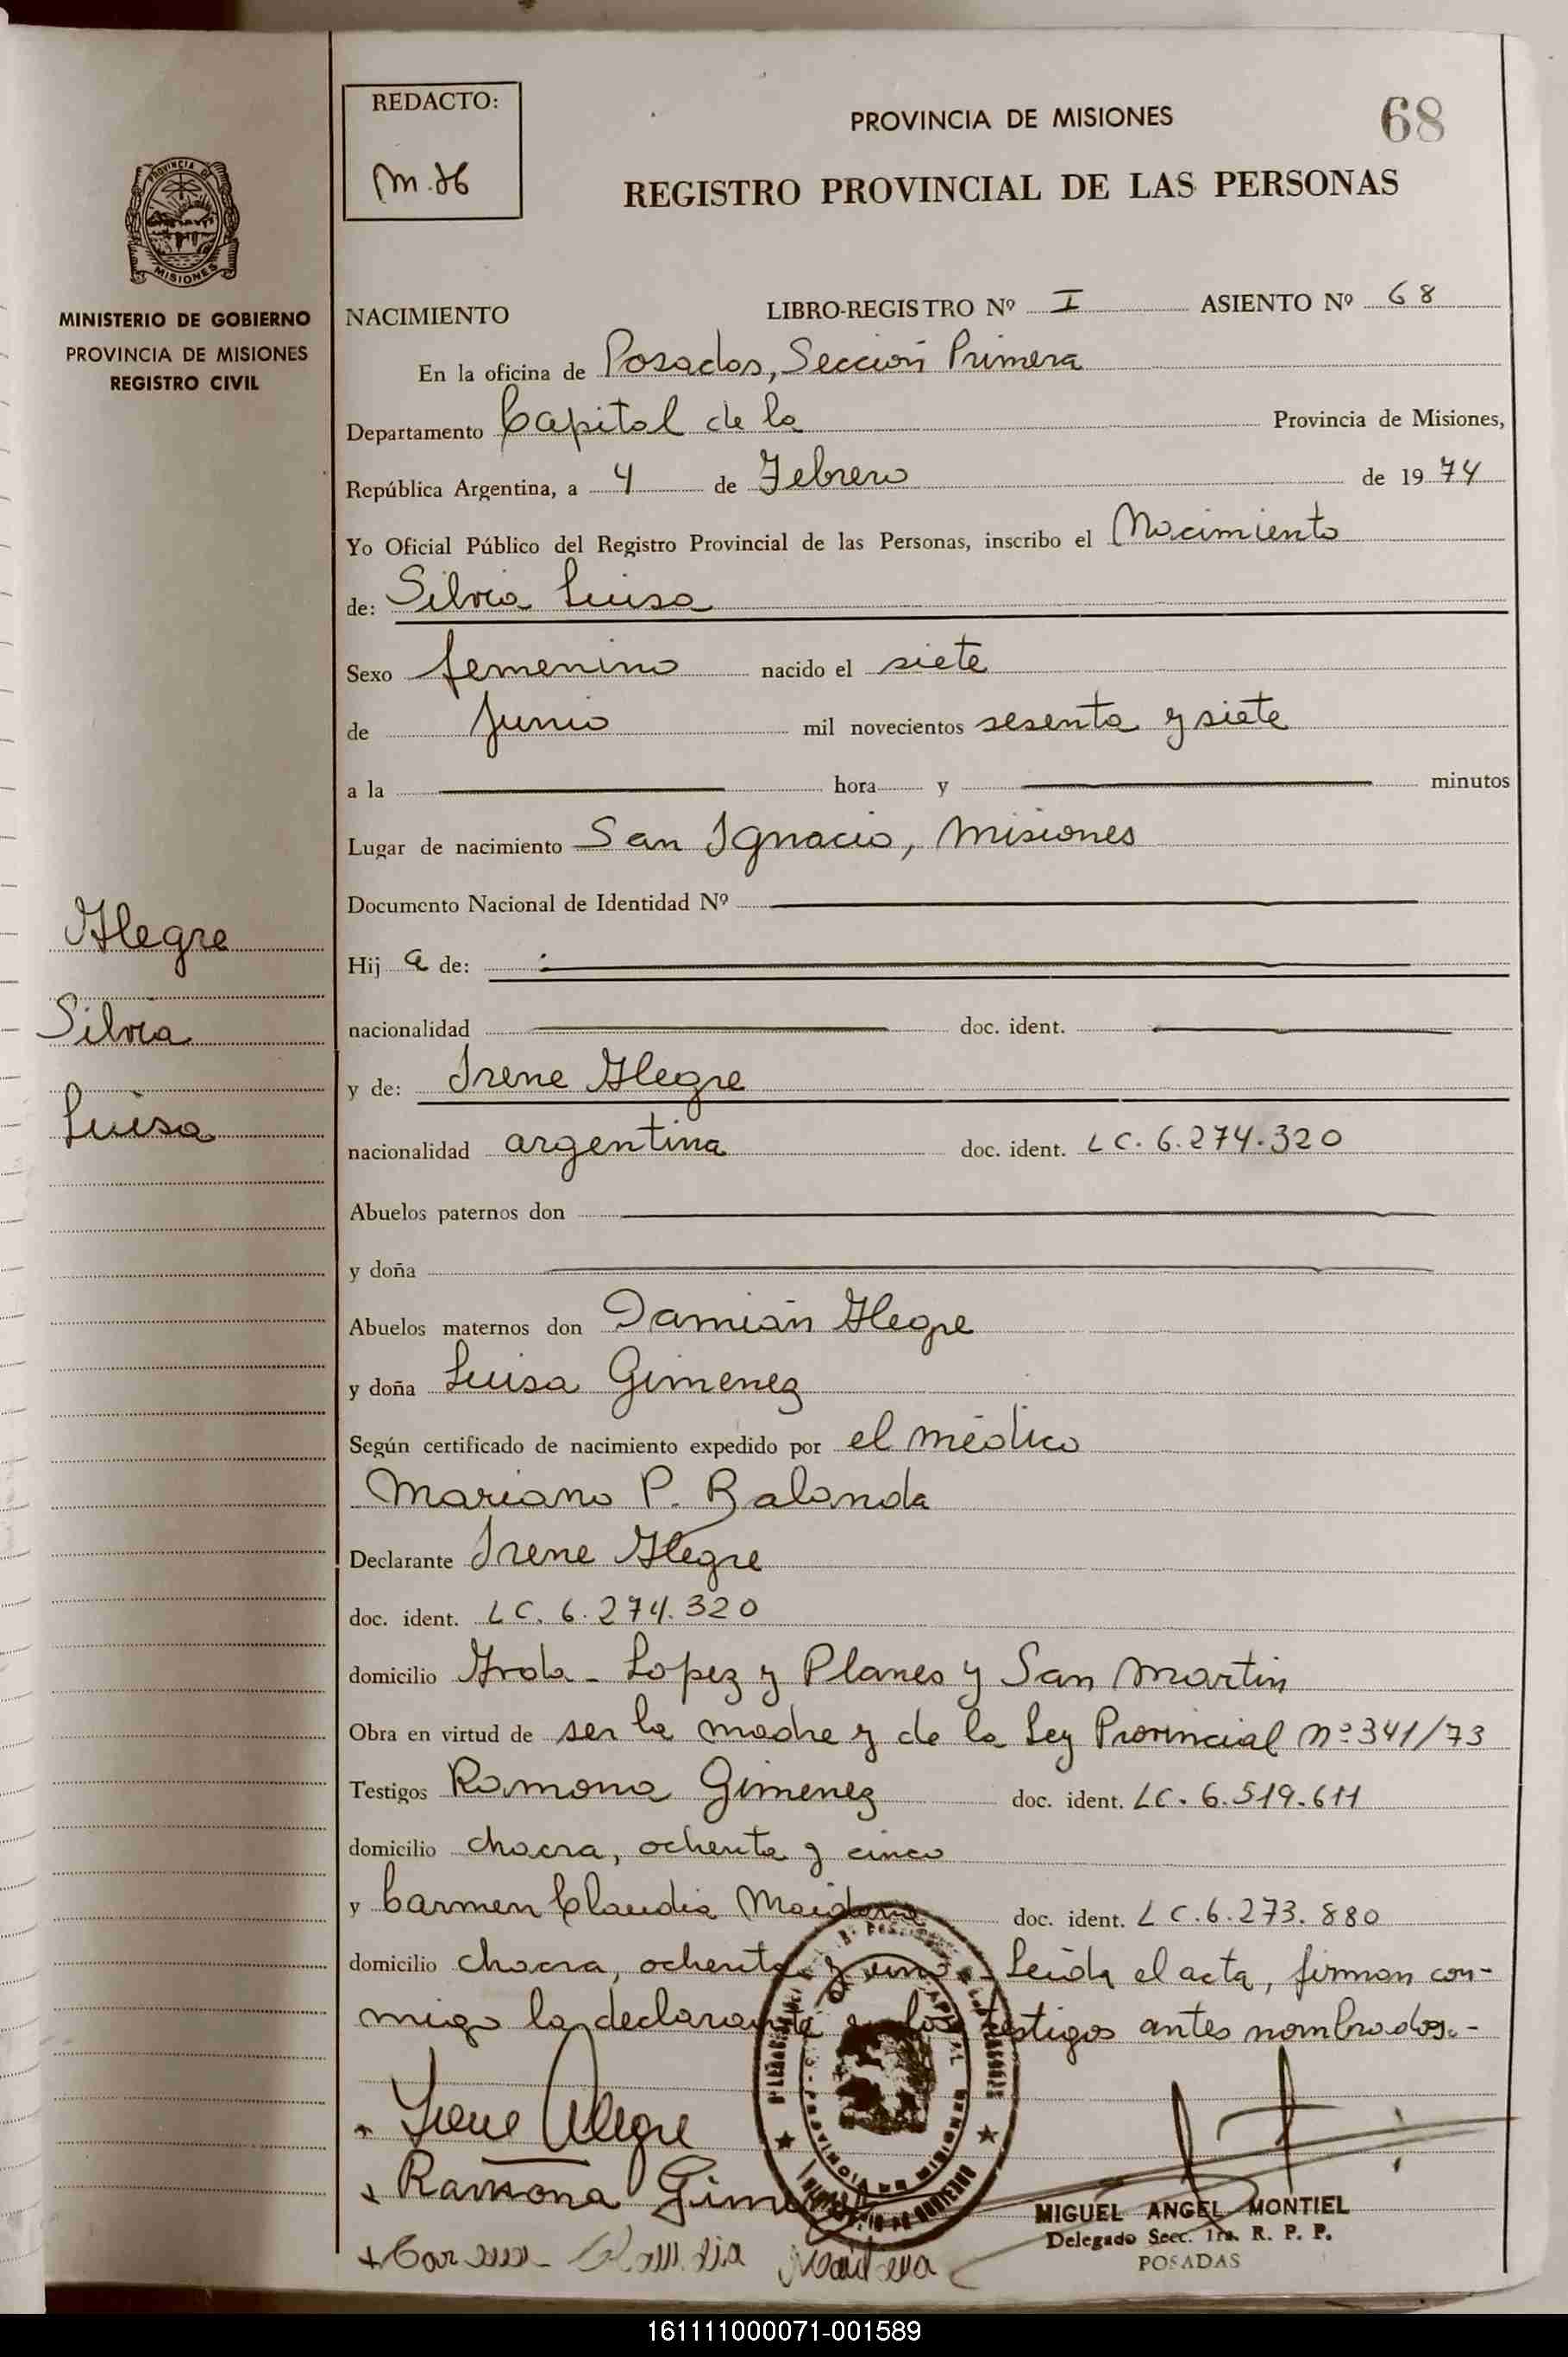 REDACTO:
PROVINCIA DE MISIONES
68
REGISTRO PROVINCIAL DE LAS PERSONAS
MISIONES
MINISTERIO DE GOBIERNO
PROVINCIA DE MISIONES
REGISTRO CIVIL
NACIMIENTO LIBRO-REGISTRO Nº I ASIENTO Nº 68
En la oficina de Posadas, Sección Primera
Departamento Capital de la Provincia de Misiones,
República Argentina, a 4 de Febrero de 1974
Yo Oficial Público del Registro Provincial de las Personas, inscribo el Nacimiento
de: Silvia Luisa
Sexo femenino nacido el siete
de Junio mil novecientos sesenta y siete
a la hora y minutos
Lugar de nacimiento San Ignacio, Misiones
Documento Nacional de Identidad Nº
Alegre
Hij a de:
Silvia
nacionalidad doc. ident.
y de: Irene Alegre
Luisa
nacionalidad argentina doc. ident. LC. 6.274.320
Abuelos paternos don
y doña
Abuelos maternos don Damián Alegre
y doña Luisa Gimenez
Según certificado de nacimiento expedido por el médico
Mariano P. Balanda
Declarante Irene Alegre
doc. ident. LC. 6.274.320
domicilio Avda- Lopez y Planes y San Martin
Obra en virtud de ser la madre y de la Ley Provincial nº 341/73
Testigos Ramona Gimenez doc. ident. LC. 6.519.611
domicilio chacra, ochenta y cinco
y Carmen Claudia Maidana doc. ident. LC.6.273.880
domicilio chacra, ochenta y uno.- Leída el acta, firman con-
migo la declarante y los testigos antes nombrados.-
Irene Alegre
Ramona Gimenez
MIGUEL ANGEL MONTIEL
Delegado Secc. 1ra. R. P. P.
POSADAS
Carmen Claudia Maidana
161111000071-001589